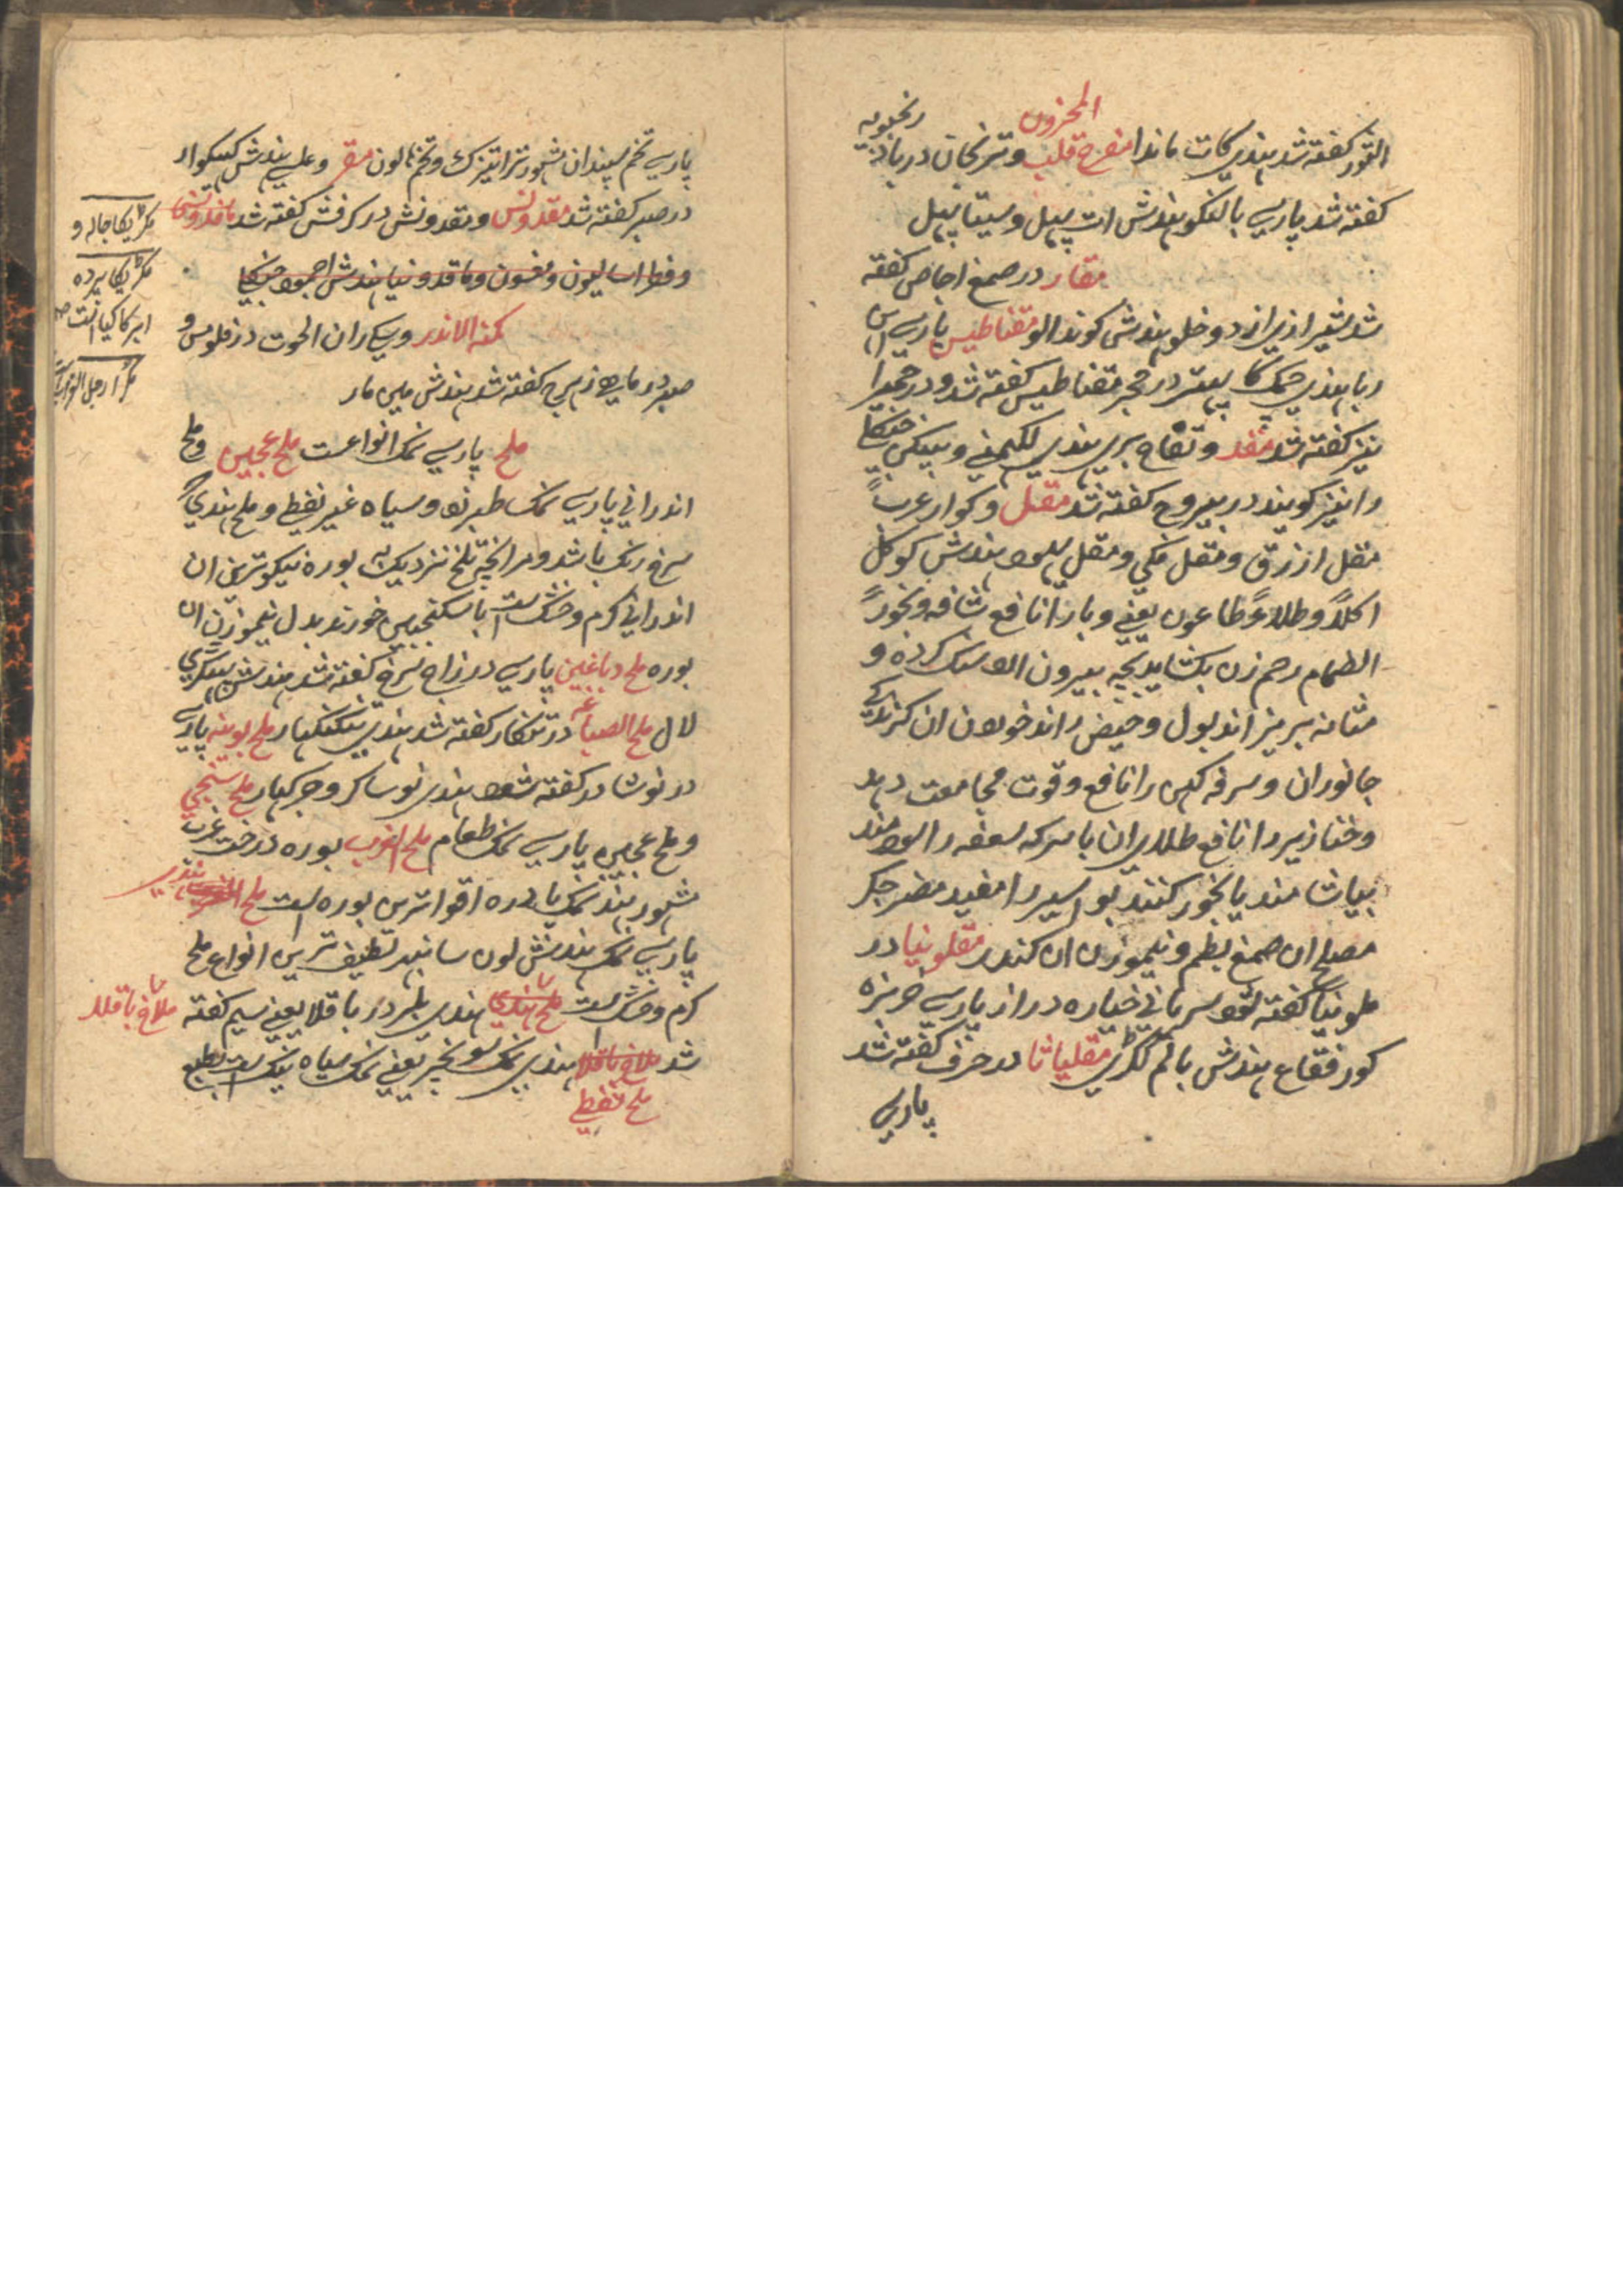 المخزون
القور کفته شد بهندی کات ماندا مفرح قلب و ترنجان در بادرنجبویه
کفته شد پارسی بالنکو بهندش ات پیپل و سیتا پیپل
مقار در صمغ اجاص کفته
شد بهندش کوند الو مقناطیس پارسی اس
ربا بهندی چمک کا پتهر در حجر مقناطیس کفته شد و در
نیز کفته شد مقد و تفاح بری بهندی لکهمنی و
را نیز کویند در یبروح کفته شد مقل و کوار عرب
مقل ازرق و مقل مکی و مقل یهود بهندش کوکل
اکلا و طلاء طاعون یعنی وبا را نافع شافه و بخورا
انضمام رحم زن بکشاید بچه بیرون ارد سنک کرده و
مثانه بریزاند بول و حیض راند خوردن ان کزندکی
جانوران و سرفه کهن را نافع و قوت مجامعت دهد
و خنازیر را نافع طلای ان با سرکه سعفه را سودمند
بیاشامند یا بخور کنند بواسیر را مفید مضر جکر
مصلح ان صمغ بطم و نیموزن ان کندر مقلونیا در
ملونیا کفته شود سریانی خیاره دراز پارسی خربزه
کور فقاع بهندش بالم ککری مقلیاثا در حرف کفته شد
پارسی
پارسی تخم سپندان مشهور تراتیزک و تخم هالون مقر و بهندش
در صبر کفته شد مقدونس و مقدونش در کرفش کفته شد ماقدونسی
و فطراسالیون و و ماقدونیا بهندش اجمود جنکلی
کمنه الاندر و سیکران الحوت در فلومس و
صبر در ماهی زهرج کفته شد بهندش مین مار
ملح پارسی نمک انواعست ملح عجین و ملح
اندرانی پارسی نمک طبرزد و سیاه غیر نفطی و ملح هندی
سرخ رنک باشد و مر انچه تلخ نزدیک به بوره نیکوترین ان
اندرانی کرم و خشک است با سکنجبین خورند بدل نیموزن ان
بوره ملح دباغین پارسی در زاج سرخ کفته شد بهندش پهتکری
لال ملح الصباغه در تنکار کفته شد بهندی تنکنکهار ملح بوینه پارسی
در نوشادر کفته شود بهندی نوساکر و جرکهار ملح سنجی
و ملح عجین پارسی نمک طعام ملح الغرب بوره درخت غرب
مشهور بهند نمک پادره اقواترین بوره است ملح
پارسی نمک بهندش لون سانبهر لطیف ترین انواع ملح
کرم و خشک است ملح هندی بهندی در باقلا یعنی سیم کفته ملاخ باقلا
شد ملاخ باقلا بهندی نمک سونچر یعنی نمک سیاه نیک است بطبع
ملح نفطی
مکریکا جاله و
مکریکا پرده
مکرا رجل الغراب